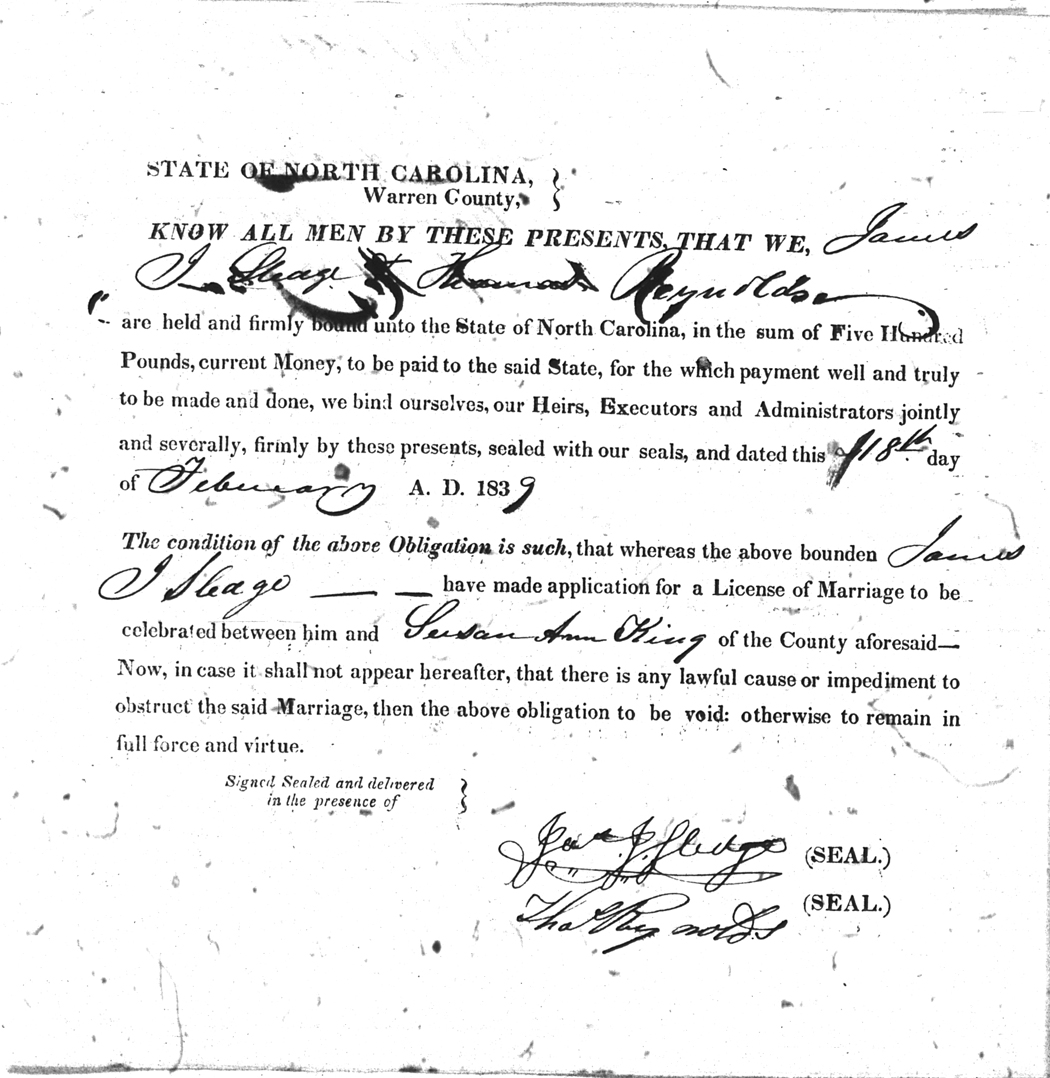 STATE OF NORTH CAROLINA,
Warren County,
KNOW ALL MEN BY THESE PRESENTS, THAT WE, James
J Sleage & Thomas Reynolds
are held and firmly bound unto the State of North Carolina, in the sum of Five Hundred
Pounds, current Money, to be paid to the said State, for the which payment well and truly
to be made and done, we bind ourselves, our Heirs, Executors and Administrators jointly
and severally, firmly by these presents, sealed with our seals, and dated this 18th day
of February A. D. 1839
The condition of the above Obligation is such, that whereas the above bounden James
J Sleage — — have made application for a License of Marriage to be
celebrated between him and Susan Ann King of the County aforesaid—
Now, in case it shall not appear hereafter, that there is any lawful cause or impediment to
obstruct the said Marriage, then the above obligation to be void: otherwise to remain in
full force and virtue.
Signed Sealed and delivered
in the presence of
Jas. J. Sledge (SEAL.)
Thos Reynolds (SEAL.)